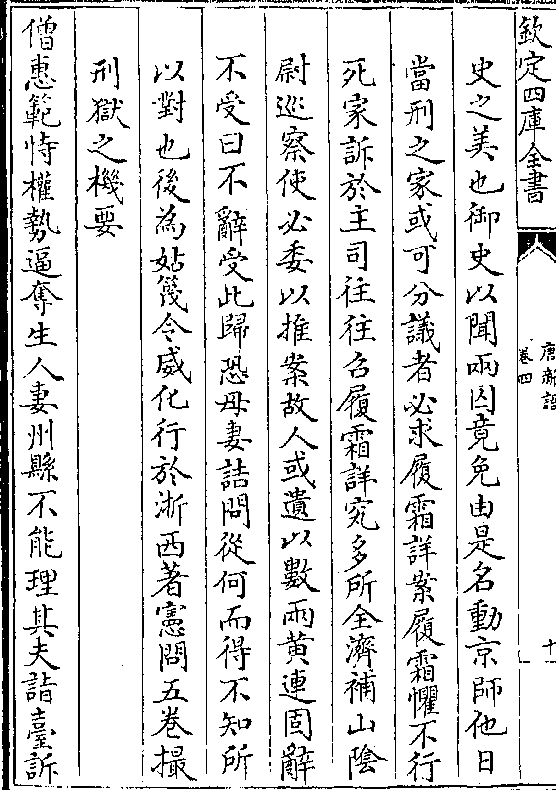 欽定四庫全書
唐新語
卷四
十一
史之美也御史以聞兩囚竟免由是名動京師他日
當刑之家或可分議者必求履霜詳案履霜懼不行
死家訴於主司往往召履霜詳究多所全濟補山陰
尉巡察使必委以推案故人或遺以數兩黄連固辭
不受曰不辭受此歸恐母妻詰問從何而得不知所
以對也後為姑篾令威化行於浙西著憲問五卷撮
刑獄之機要
僧惠範恃權勢逼奪生人妻州縣不能理其夫詣臺訴